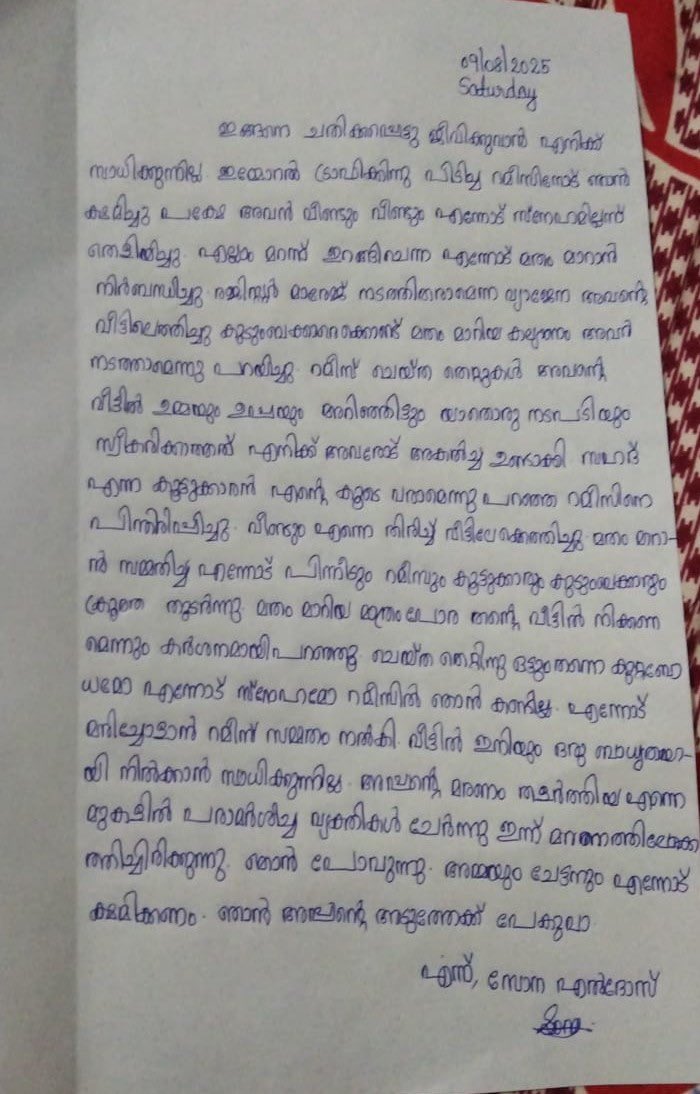 09/08/2025
Saturday
ഇങ്ങനെ ചതിക്കപ്പെട്ടു ജീവിക്കുവാൻ എനിക്ക്
സാധിക്കുന്നില്ല ഇമ്മോറൽ ട്രാഫിക്കിനു പിടിച്ച റമീസിനോട് ഞാൻ
ക്ഷമിച്ചു പക്ഷേ അവൻ വീണ്ടും വീണ്ടും എന്നോട് സ്നേഹമില്ലന്ന്
തെളിയിച്ചു. എല്ലാം മറന്ന് ഇറങ്ങിചെന്ന എന്നോട് മതം മാറാൻ
നിർബന്ധിച്ചു രജിസ്റ്റർ മാരേജ് നടത്തിതരാമെന്ന വ്യാജേന അവന്റെ
വീട്ടിലെത്തിച്ചു കുടുംബക്കാരെക്കൊണ്ട് മതം മാറിയ കല്യാണം അവർ
നടത്താമെന്നു പറയിച്ചു. റമീസ് ചെയ്ത തെറ്റുകൾ അവന്റെ
വീട്ടിൽ ഉമ്മയും ഉപ്പയും അറിഞ്ഞിട്ടും യാതൊരു നടപടിയും
സ്വീകരിക്കാത്തത് എനിക്ക് അവരോട് അകൽച്ച ഉണ്ടാക്കി സഹദ്
എന്ന കൂട്ടുകാരൻ എന്റെ കൂടെ വരാമെന്നു പറഞ്ഞ റമീസിനെ
പിന്തിരിപ്പിച്ചു. വീണ്ടും എന്നെ തിരിച്ച് വീട്ടിലേക്കെത്തിച്ചു. മതം മറാ-
ൻ സമ്മതിച്ച എന്നോട് പിന്നീടും റമീസും കൂട്ടുക്കാരും കുടുംബക്കാരും
ക്രൂരത തുടർന്നു. മതം മാറിയ മാത്രംപോര തന്റെ വീട്ടിൽ നിക്കണ
മെന്നും കർശനമായിപറഞ്ഞു. ചെയ്ത തെറ്റിനു ഒട്ടുംതന്നെ കുറ്റബോ
ധമോ എന്നോട് സ്നേഹമോ റമീസിൽ ഞാൻ കണ്ടില്ല. എന്നോട്
മരിച്ചോളാൻ റമീസ് സമ്മതം നൽകി. വീട്ടിൽ ഇനിയും ഒരു ബാധ്യതയാ-
യി നിൽക്കാൻ സാധിക്കുന്നില്ല. അപ്പന്റെ മരണം തളർത്തിയ എന്നെ
മുകളിൽ പരാമർശിച്ച വ്യക്തികൾ ചേർന്നു ഇന്ന് മരണത്തിലേക്കെ
ത്തിച്ചിരിക്കുന്നു. ഞാൻ പോവുന്നു. അമ്മയും ചേട്ടനും എന്നോട്
ക്ഷമിക്കണം. ഞാൻ അപ്പന്റെ അടുത്തേക്ക് പേകുവാ.
എന്ന്, സോന എൽദോസ്